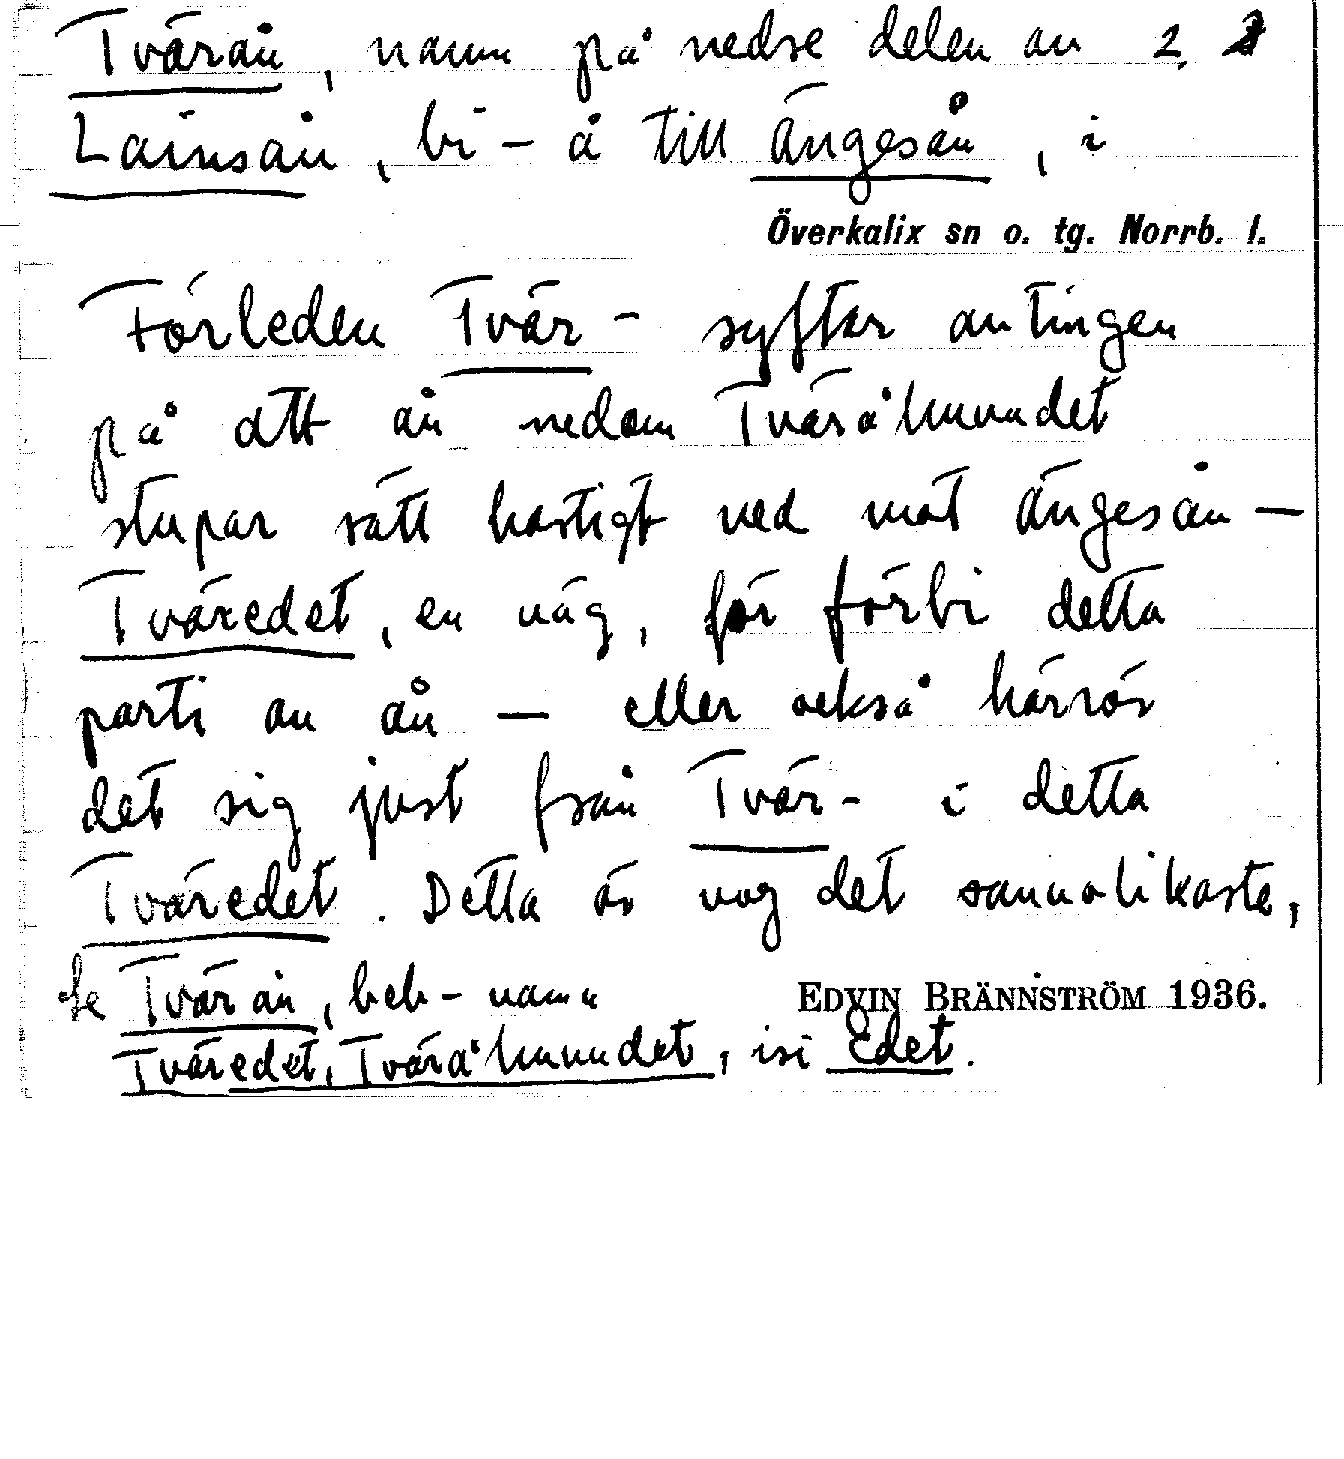 Tvärån, namn på nedre delen av 2.
Lainsån, bi-å till Ängesån, i
Överkalix sn o. tg. Norrb. l.
Förleden Tvär- syftar antingen
på att ån nedom Tväråhuvudet
stupar rätt hastigt ned mot Ängesån —
Tväredet, en väg, för förbi detta
parti av ån — eller också härrör
det sig just från Tvär- i detta
Tväredet. Detta är nog det sannolikaste,
Se Tvärån, beb-namn
EDVIN BRÄNNSTRÖM 1936.
Tväredet, Tväråhuvudet, isi Edet.